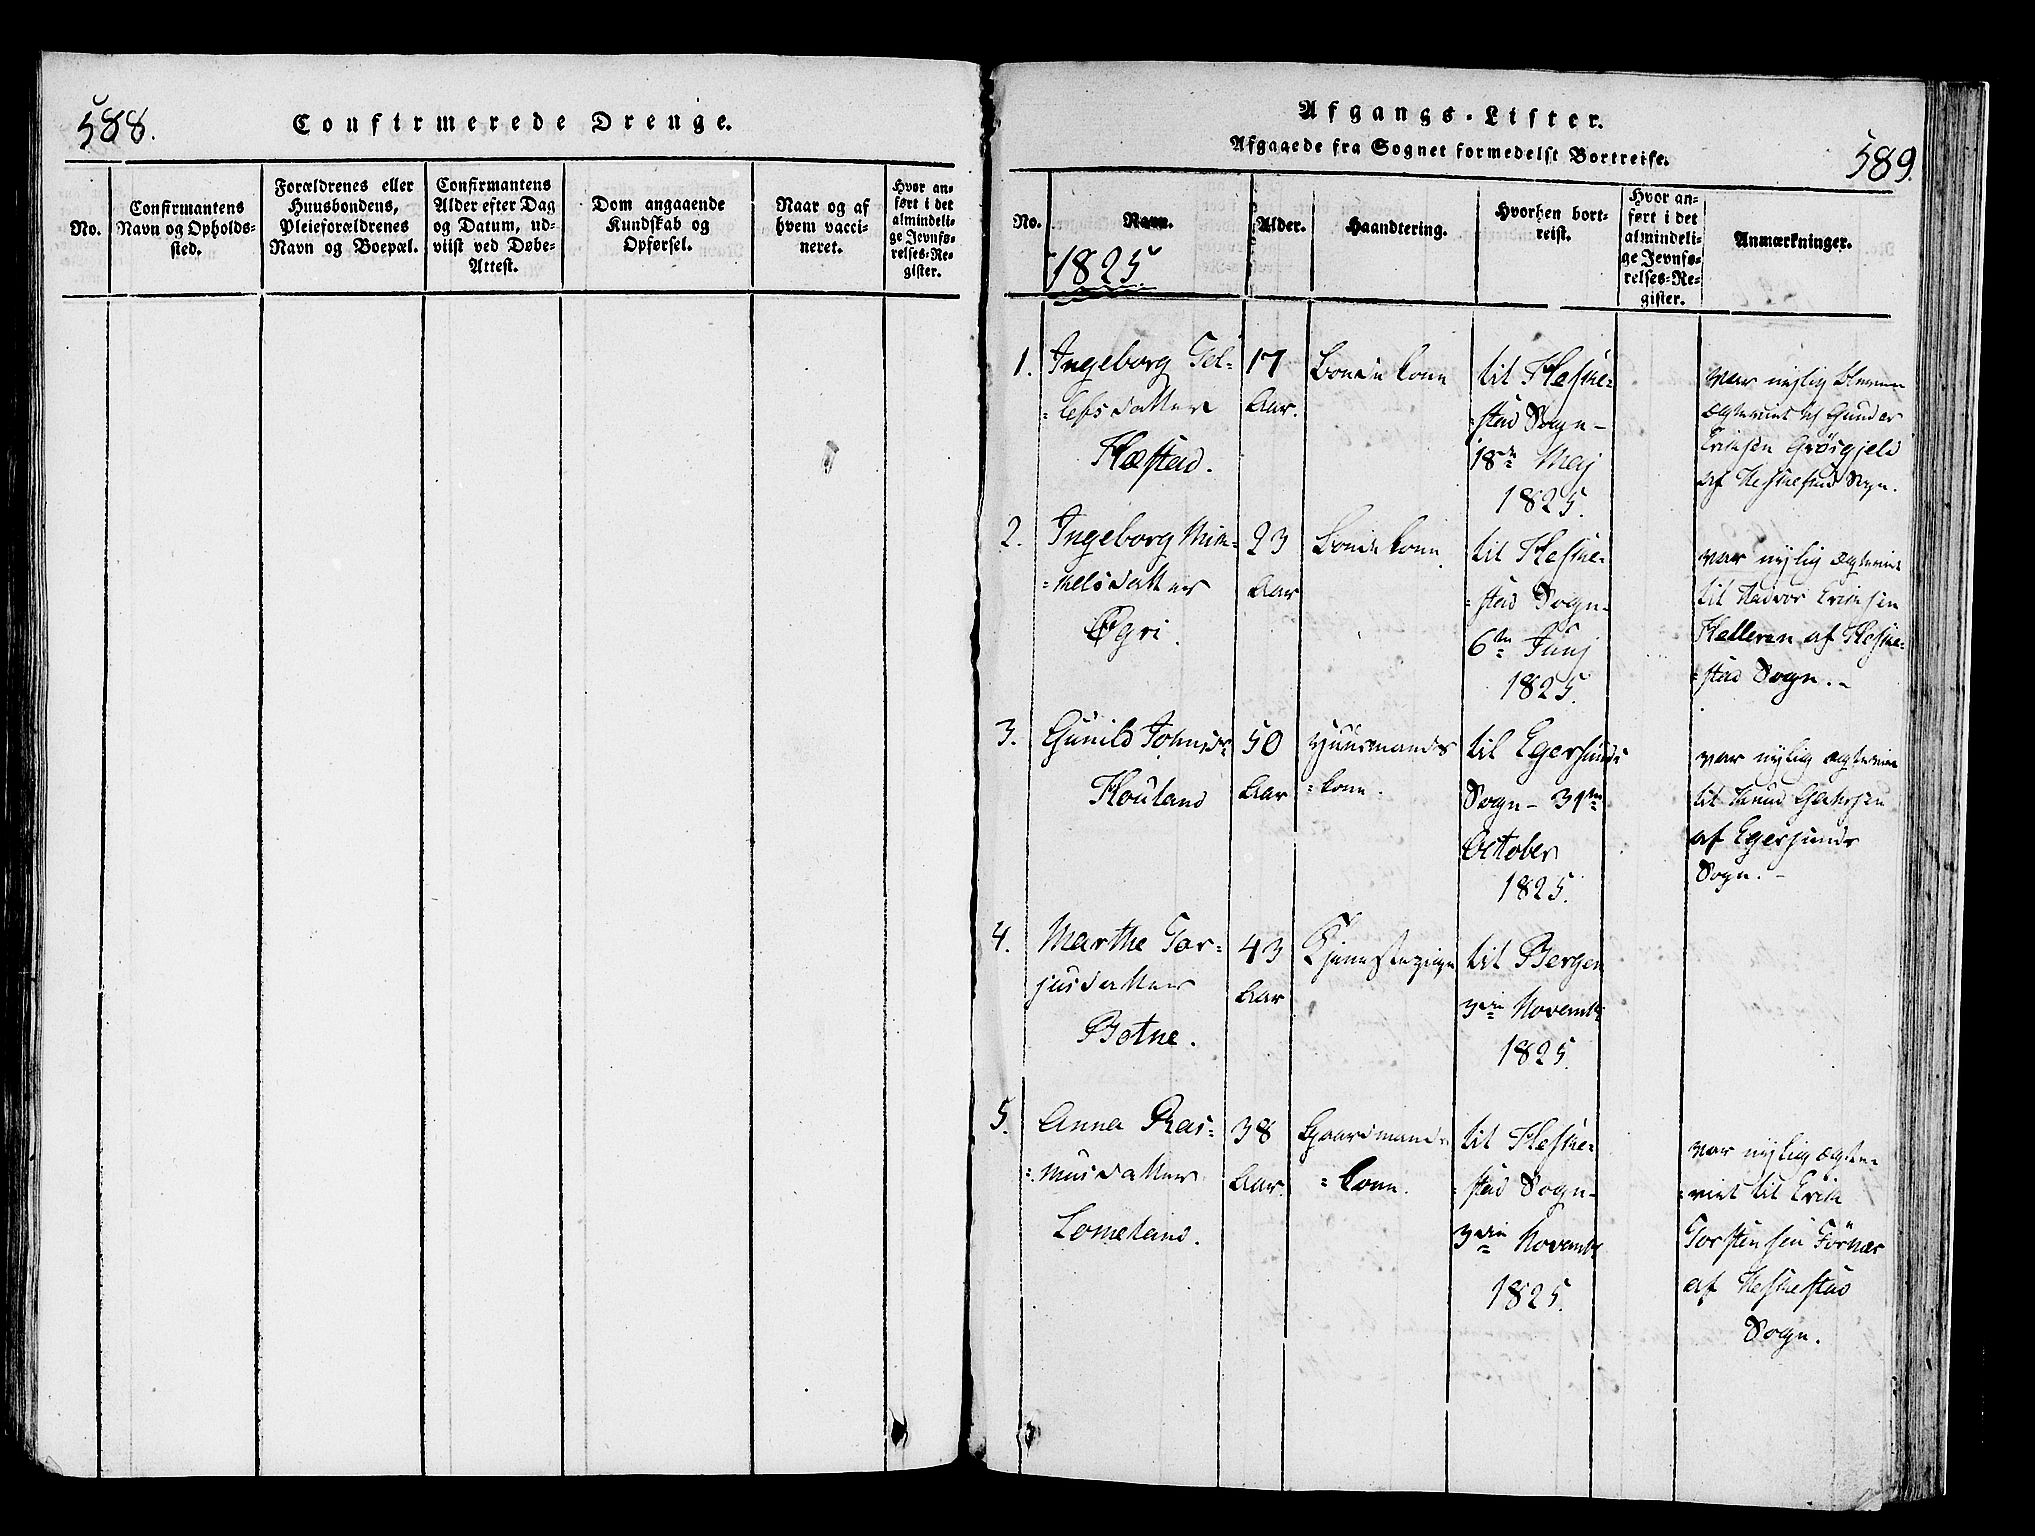 588.
Confirmerede Drenge.
No.
Confirmantens
Navn og Opholds-
sted.
Forældrenes eller
Huusbondens,
Pleieforældrenes
Navn og Boepæl.
Confirmantens
Alder efter Dag
og Datum, ud-
viist ved Døbe-
Attest.
Dom angaaende
Kundskab og
Opførsel.
Naar og af
hvem vacci-
neret.
Hvor an-
ført i det
almindeli-
ge Jevnfø-
relses-Re-
gister.
Afgangs-Lister.
Afgaaede fra Sognet formedelst Bortreise.
589.
No.
Navn.
1825.
Alder.
Haandtering.
Hvorhen bort-
reist.
Hvor an-
ført i det
almindeli-
ge Jevnfø-
relses-Re-
gister.
Anmærkninger.
1.
Ingeborg Tol-
=lefsdatter
Hæstad.
17
Aar.
Bondekone
til Heskne-
=stad Sogn -
18de Maj
1825.
var nylig
til Gunder
Eriksen Grøsgjeld
af Hesknestad Sogn.
2.
Ingeborg Mik-
=kelsdatter
Øgri.
23
Aar
Bondekone
til Heskne-
=stad Sogn-
6te Junj
1825.
var nylig
til Hadvor Eriksen
Helleren af Heskne-
=stad Sogn.-
3.
Gunild Johnsdr
Houland
50
Aar
Huusmands
=kone.
til Egersunds
Sogn - 31te
October
1825.
var nylig
til Knud
af Egersunds
Sogn. -
4.
Marthe Tor-
jusdatter
Botne.
43
Aar
Tjenestepige
til Bergen
3die Novembr
1825.
5.
Anna Ras-
=musdatter
Lomeland.
38
Aar.
Gaardmands
=kone.
til Heskne-
=stad Sogn-
3die Novembr
1825.
var nylig ægte-
=viet til Erik
Torstensen
af Hesknestad
Sogn.